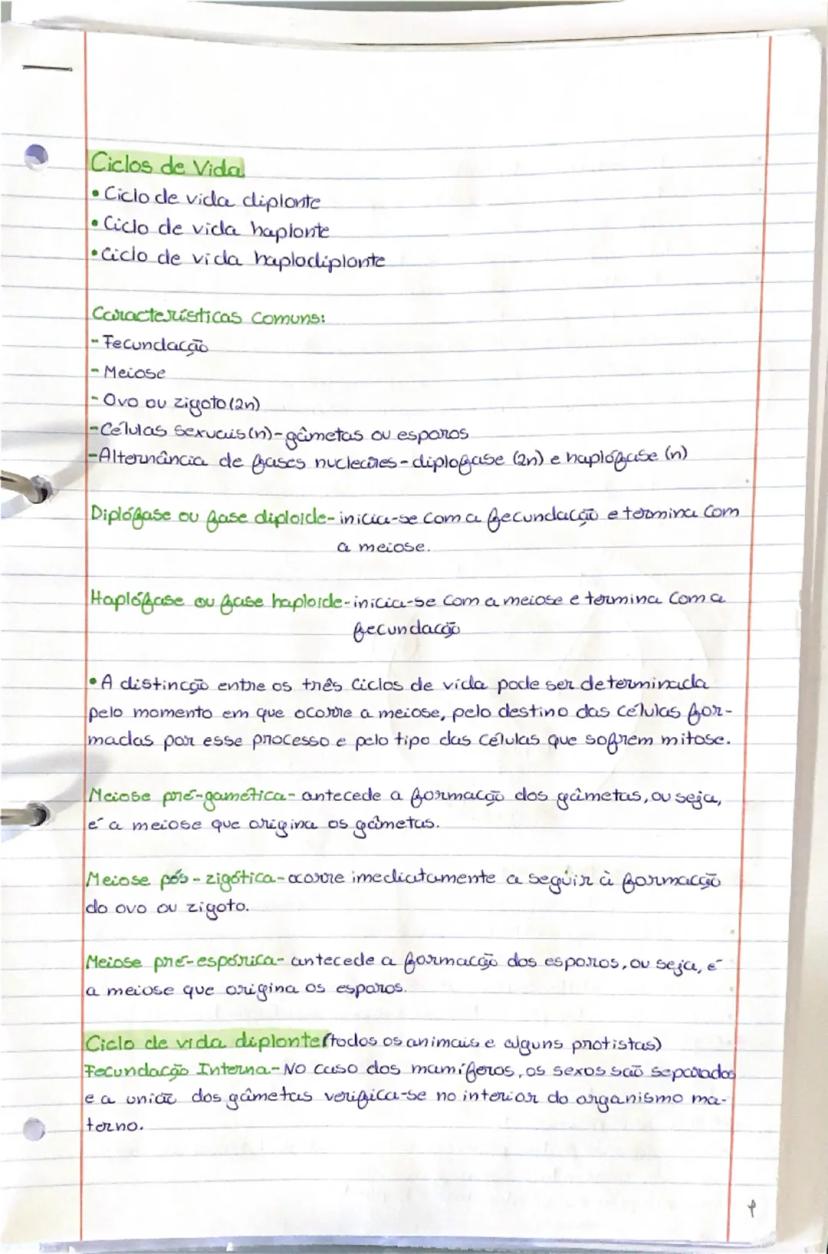 Ciclos de Vida
• Ciclo de vida diplonte
• Ciclo de vida haplonte
• Ciclo de vida haplodiplonte
Características Comuns:
- Fecundação
- Meiose
- Ovo ou zigoto (2n)
- Células sexuais (n) - gâmetas ou esporos
- Alternância de fases nucleares - diplofase (2n) e haplófase (n)
Diplófase ou fase diploide - inicia-se com a fecundação e termina com
a meiose.
Haplófase ou fase haploide - inicia-se com a meiose e termina com a
fecundação
• A distinção entre os três ciclos de vida pode ser determinada
pelo momento em que ocorre a meiose, pelo destino das células for-
madas por esse processo e pelo tipo das células que sofrem mitose.
Meiose pré-gamética - antecede a formação dos gâmetas, ou seja,
é a meiose que origina os gâmetas.
Meiose pós-zigótica - ocorre imediatamente a seguir à formação
do ovo ou zigoto.
Meiose pré-espórica - antecede a formação dos esporos, ou seja, é
a meiose que origina os esporos.
Ciclo de vida diplonte (todos os animais e alguns protistas)
Fecundação Interna - No caso dos mamíferos, os sexos são separados
e a união dos gâmetas verifica-se no interior do organismo ma-
terno.